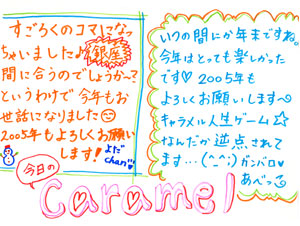 すごろくのコマになっ
ちゃいました♪銀座
間に合うのでしょうか〜?
というわけで今年もお
世話になりました☺
2005年もよろしくお願い
します! よだ
chan♡
いつの間にか年末ですね。
今年はとっても楽しかった
です♡2005年も
よろしくお願いします〜
キャラメル人生ゲーム☆
なんだか逆点されて
ます…(^_^;)ガンバロ♥
あべっち
今日の
Caramel